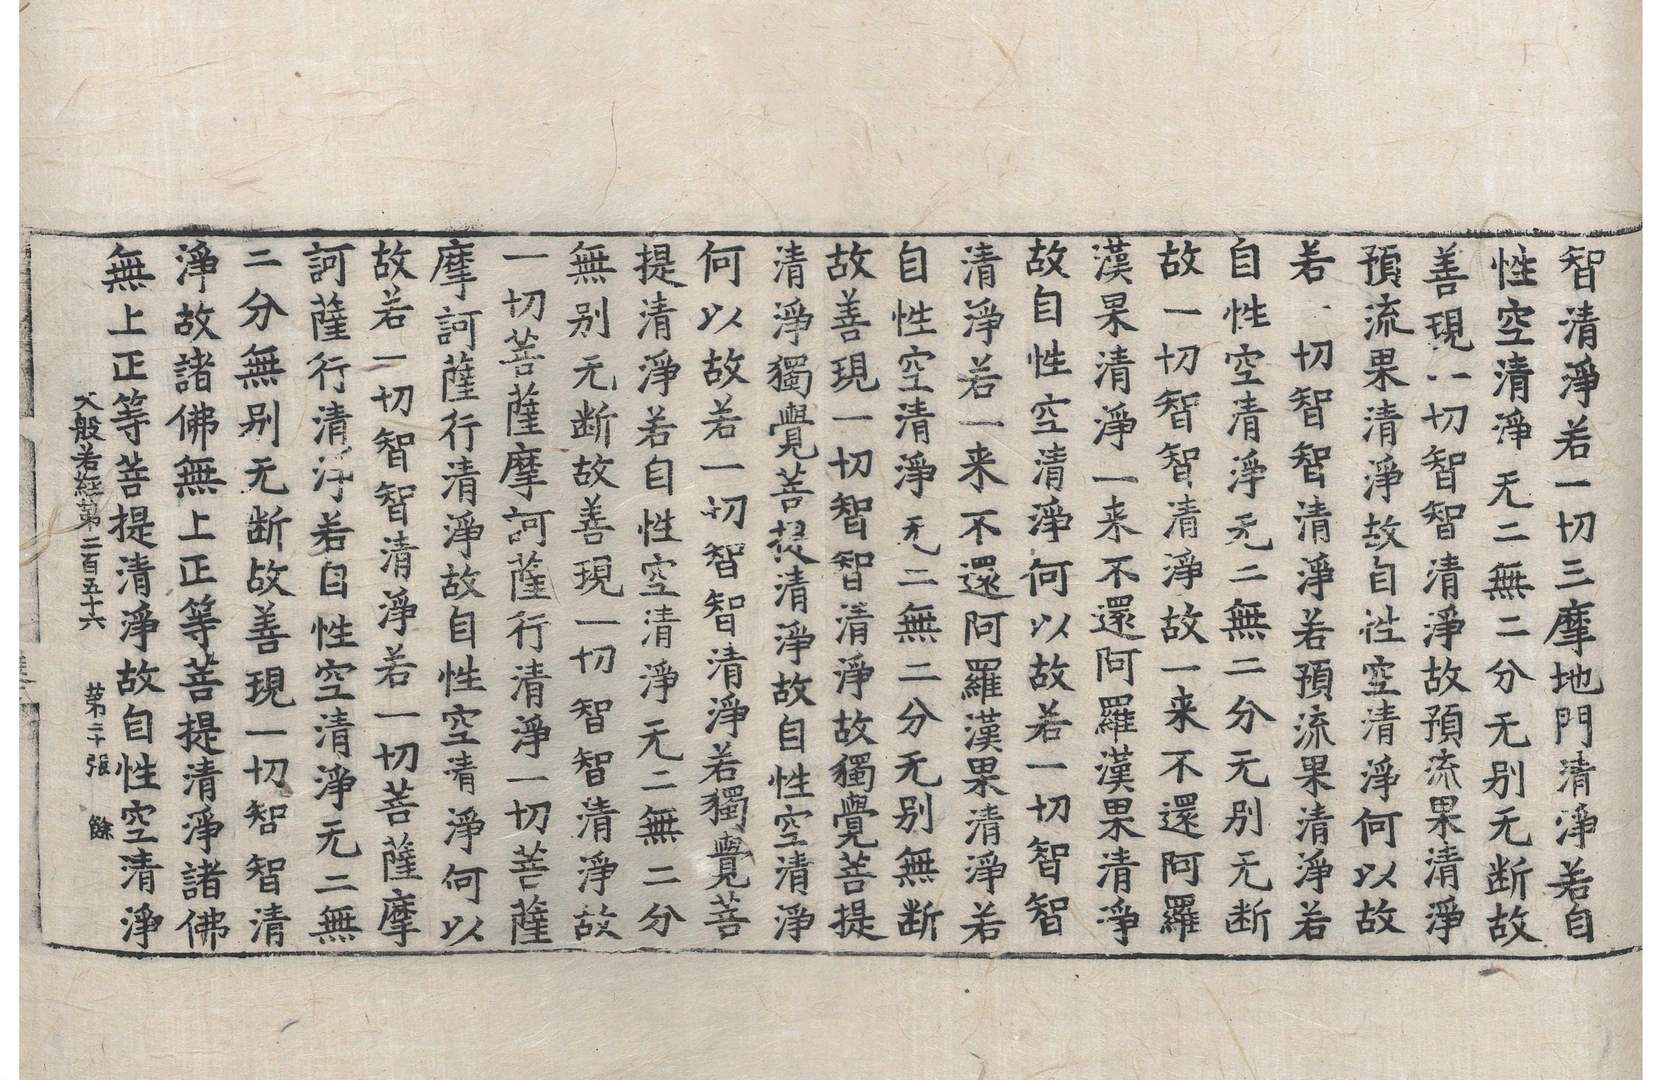 智清淨若一切三摩地門清淨若自
性空清淨无二無二分无別无断故
善現一切智智清淨故預流果清淨
預流果清淨故自性空清淨何以故
若一切智智清淨若預流果清淨若
自性空清淨无二無二分无別无断
故一切智智清淨故一来不還阿羅
漢果清淨一来不還阿羅漢果清淨
故自性空清淨何以故若一切智智
清淨若一来不還阿羅漢果清淨若
自性空清淨无二無二分无別無断
故善現一切智智清淨故獨覺菩提
清淨獨覺菩提清淨故自性空清淨
何以故若一切智智清淨若獨覺菩
提清淨若自性空清淨无二無二分
無別无断故善現一切智智清淨故
一切菩薩摩訶薩行清淨一切菩薩
摩訶薩行清淨故自性空清淨何以
故若一切智智清淨若一切菩薩摩
訶薩行清淨若自性空清淨无二無
二分無別无断故善現一切智智清
淨故諸佛無上正等菩提清淨諸佛
無上正等菩提清淨故自性空清淨
大般若經第二百五十六 第二十張 餘